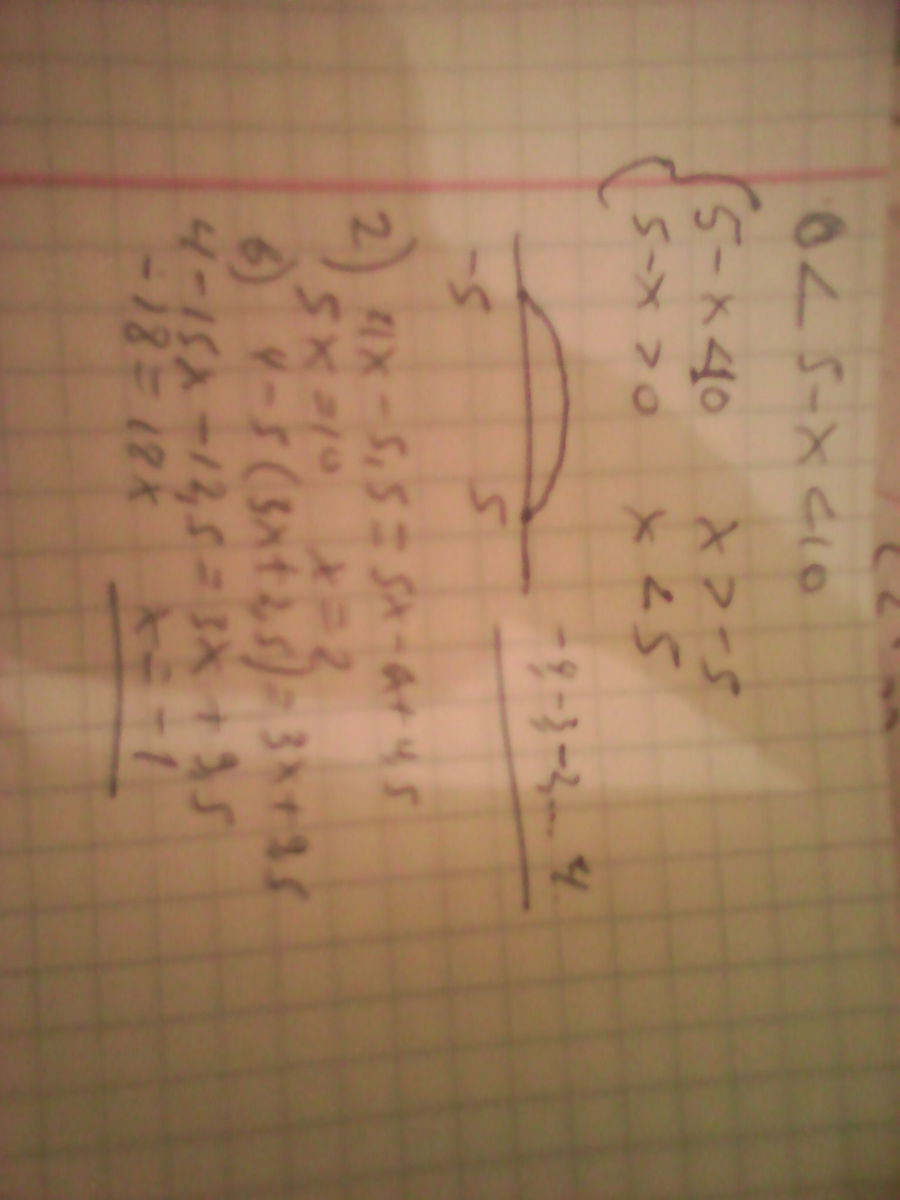 0 < 5 - x < 10
{ 5 - x < 10    x > -5
5 - x > 0    x < 5
-4, -3, -2, ... 4
-5    5
2) 4x - 5,5 = 5x -
5x = 10    x = 2
б) 4 - 5(3x + 2,5) = 3x + 9,5
4 - 15x - 12,5 = 3x + 9,5
-18 = 18x    x = -1